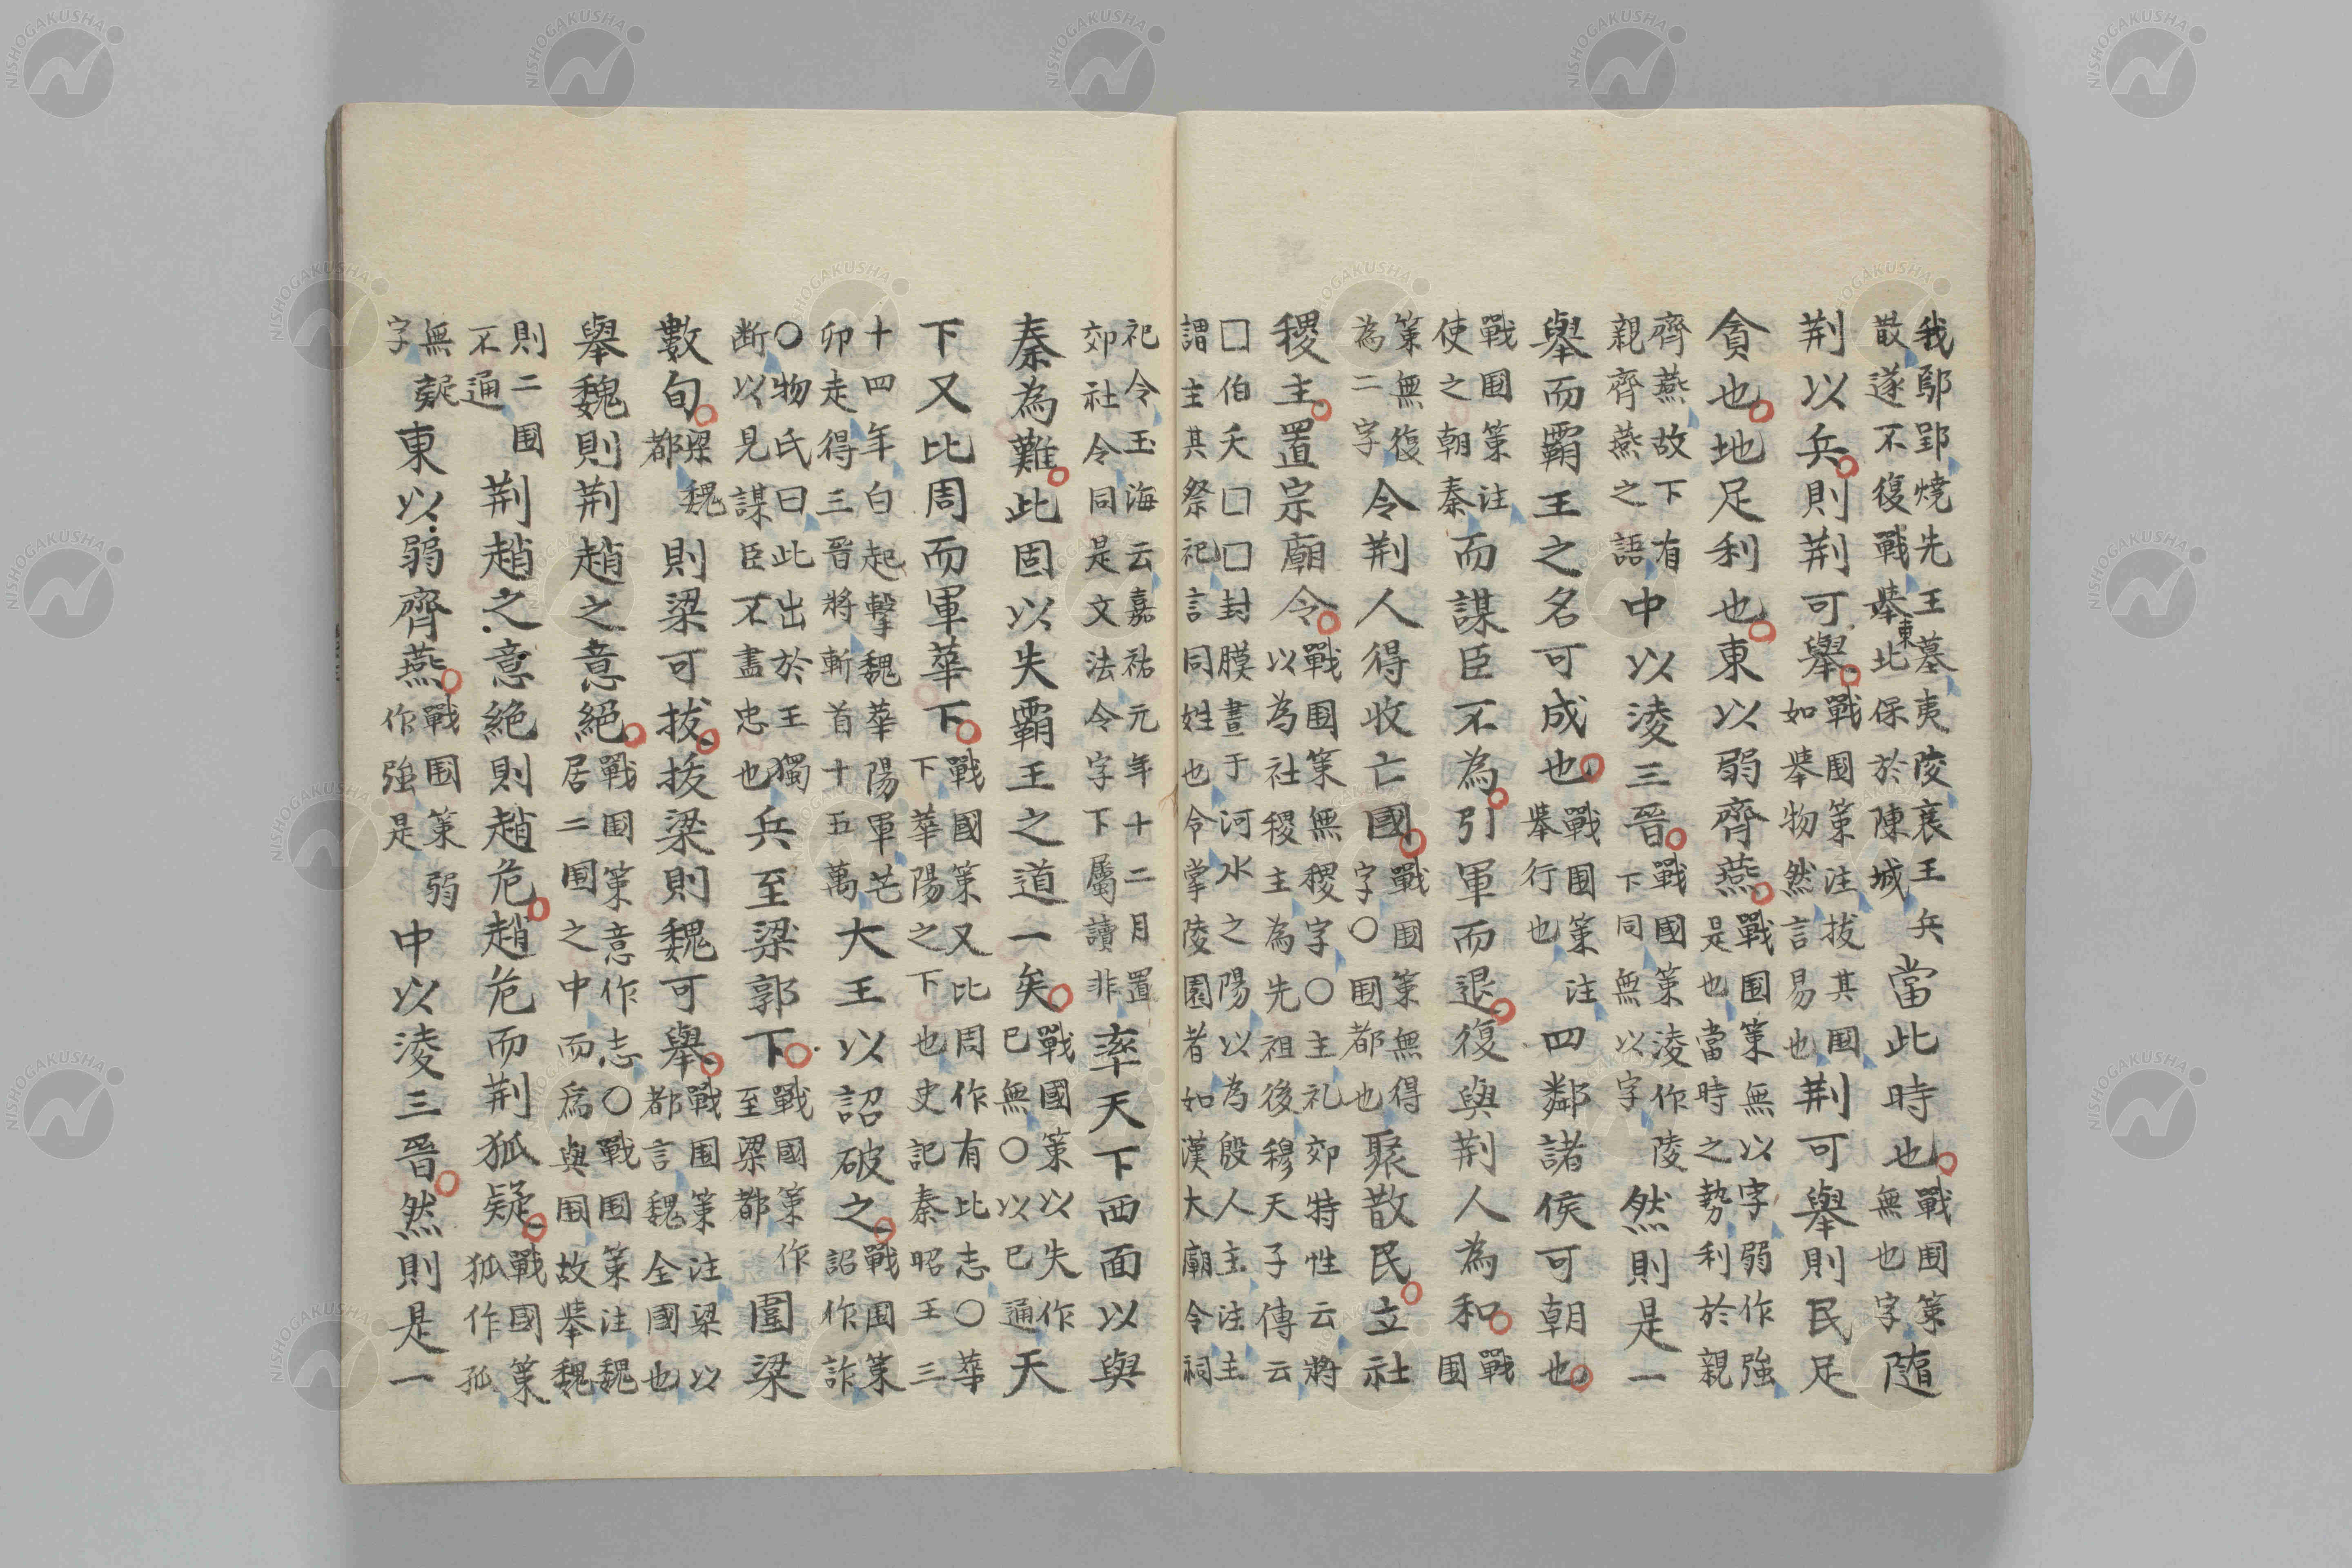 我鄢郢燒先王墓夷陵襄王兵
散遂不復戰拳東北保於陳城
當此時也
戰囯策
無也字
隨
荆以兵則荆可舉
戰囯策注拔其囯
如拳物然言易也
荆可舉則民足
貪也地足利也東以弱齊燕
戰囯策無以字弱作強
是也當時之勢利於親
齊燕故下有
親齊燕之語
中以淩三晉
戰國策淩作陵
下同無以字
然則是一
舉而霸王之名可成也
戰囯策注
拳行也
四鄰諸侯可朝也
戰囯策注
使之朝秦
而謀臣不為引軍而退復與荆人為和
戰
囯
策無復
為二字
令荆人得收亡國
戰囯策無得
字〇囯都也
聚散民立社
稷主置宗廟令
戰囯策無稷字〇主礼郊特性云將
以為社稷主為先祖後穆天子傳云
□伯夭□□封膜晝于河水之陽以為殷人主注主
謂主其祭祀言同姓也令掌陵園者如漢大廟令祠
祀令玉海云嘉祐元年十二月置
郊社令同是文法令字下屬讀非
率天下西面以與
秦為難此固以失霸王之道一矣
戰國策以失作
已無〇以已通
天
下又比周而軍華下
戰國策又比周作有比志〇華
下華陽之下也史記秦昭王三
十四年白起擊魏華陽軍芒
卯走得三晉將斬首十五萬
大王以詔破之
戰囯策
詔作詐
〇物氏曰此出於王獨
断以見謀臣不盡忠也
兵至梁郭下
戰國策作
至梁都
圍梁
數旬
梁魏
都
則梁可拔拔梁則魏可舉
戰囯策注梁以
都言魏全國也
舉魏則荆趙之意絕
戰囯策意作志〇戰囯策注魏
居二囯之中而為與囯故拳魏
則二囯
不通
荆趙之意絕則趙危趙危而荆狐疑
戰國策
狐作孤
無疑
字
東以弱齊燕
戰囯策弱
作強是
中以淩三晉然則是一